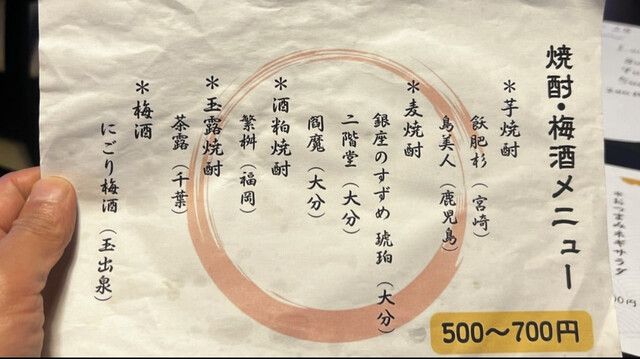 焼酎・梅酒メニュー
*芋焼酎
飫肥杉(宮崎)
島美人(鹿児島)
*麦焼酎
銀座のすずめ 琥珀(大分)
二階堂(大分)
閻魔(大分)
*酒粕焼酎
繁桝(福岡)
*玉露焼酎
茶露(千葉)
*梅酒
にごり梅酒(玉出泉)
500〜700円
*おつまみネギサラダ